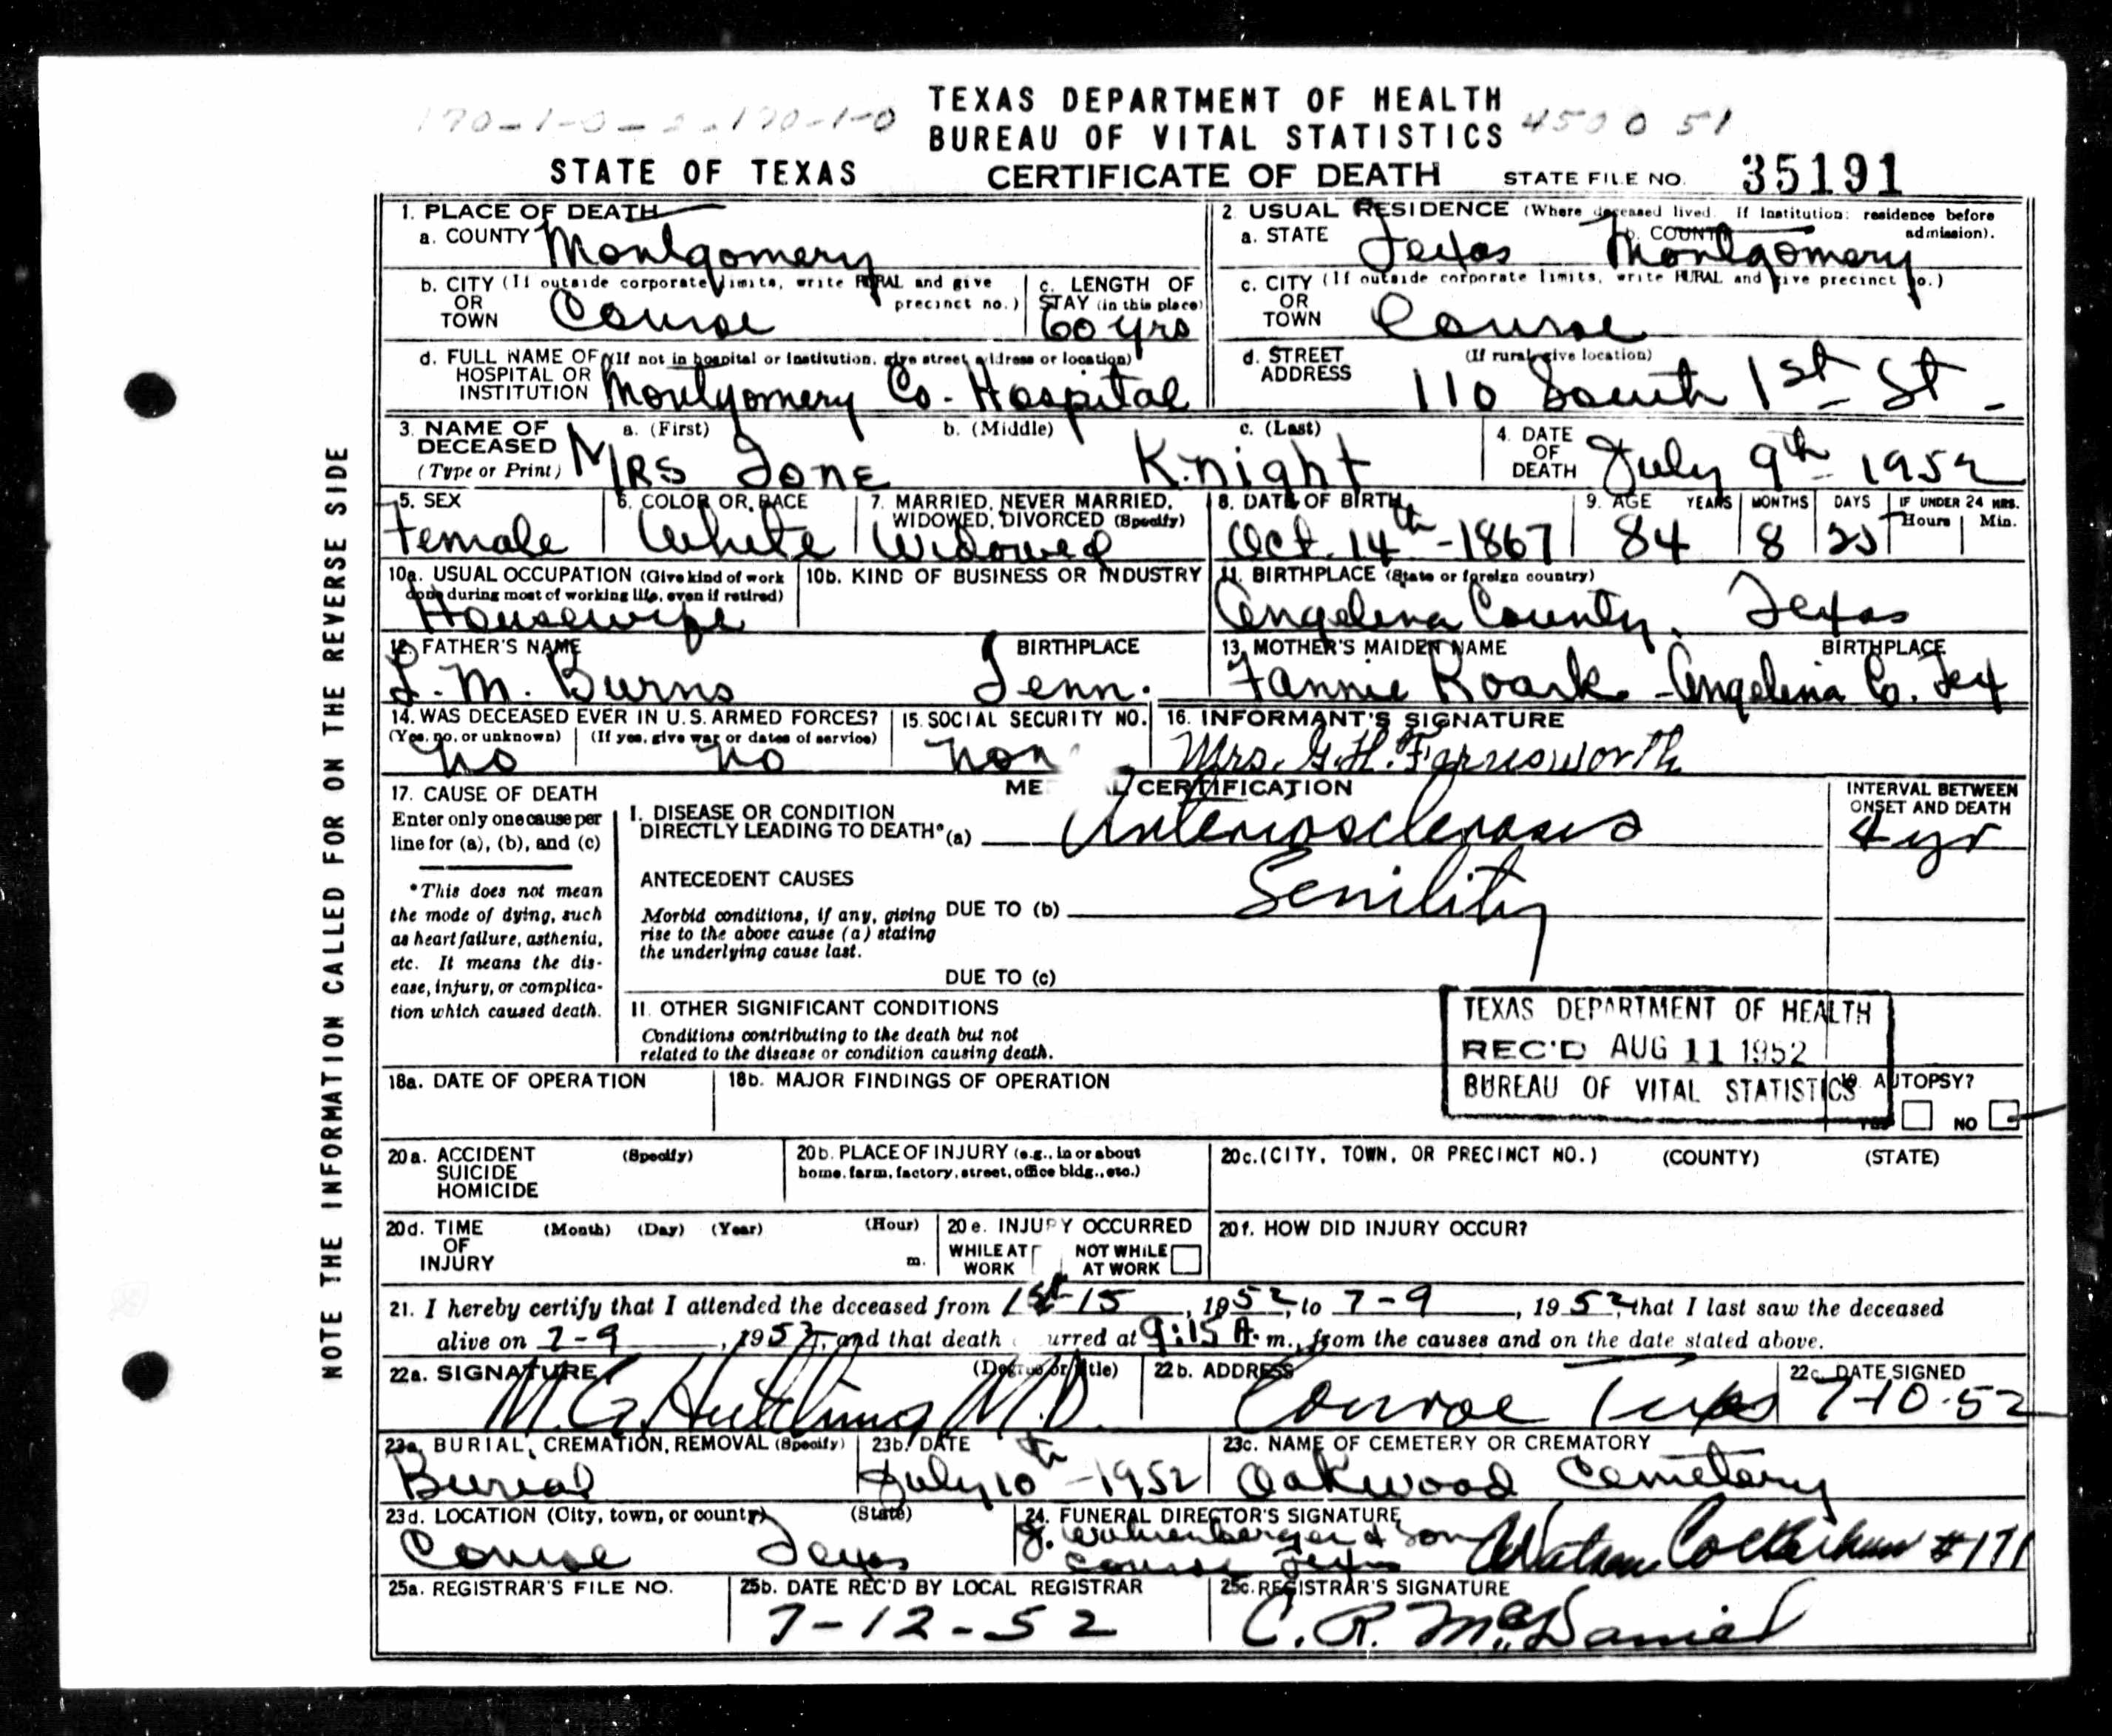 170-1-0-2-170-1-0
TEXAS DEPARTMENT OF HEALTH
450 0 51
BUREAU OF VITAL STATISTICS
STATE OF TEXAS
CERTIFICATE OF DEATH
STATE FILE NO. 35191
NOTE THE INFORMATION CALLED FOR ON THE REVERSE SIDE
1. PLACE OF DEATH
a. COUNTY Montgomery
2. USUAL RESIDENCE (Where deceased lived. If Institution: residence before admission).
a. STATE Texas b. COUNTY Montgomery
b. CITY (If outside corporate limits, write RURAL and give precinct no.)
OR
TOWN Conroe
c. LENGTH OF
STAY (in this place)
60 yrs
c. CITY (If outside corporate limits, write RURAL and give precinct no.)
OR
TOWN Conroe
d. FULL NAME OF (If not in hospital or institution, give street address or location)
HOSPITAL OR
INSTITUTION Montgomery Co. Hospital
d. STREET (If rural give location)
ADDRESS 110 South 1st St.
3. NAME OF DECEASED
(Type or Print)
a. (First) b. (Middle) c. (Last)
MRS IONE Knight
4. DATE
OF
DEATH July 9th 1952
5. SEX
Female
6. COLOR OR RACE
White
7. MARRIED, NEVER MARRIED,
WIDOWED, DIVORCED (Specify)
Widowed
8. DATE OF BIRTH
Oct. 14th-1867
9. AGE YEARS MONTHS DAYS IF UNDER 24 HRS.
Hours Min.
84 8 25
10a. USUAL OCCUPATION (Give kind of work
done during most of working life, even if retired)
Housewife
10b. KIND OF BUSINESS OR INDUSTRY
11. BIRTHPLACE (State or foreign country)
Angelina County, Texas
12. FATHER'S NAME BIRTHPLACE
L. M. Burns Tenn.
13. MOTHER'S MAIDEN NAME BIRTHPLACE
Fannie Roark - Angelina Co. Tex
14. WAS DECEASED EVER IN U.S. ARMED FORCES?
(Yes, no, or unknown) (If yes, give war or dates of service)
no no
15. SOCIAL SECURITY NO.
non
16. INFORMANT'S SIGNATURE
Mrs. G.H. Farnsworth
17. CAUSE OF DEATH
Enter only one cause per
line for (a), (b), and (c)
*This does not mean
the mode of dying, such
as heart failure, asthenia,
etc. It means the dis-
ease, injury, or complica-
tion which caused death.
ME L CERTIFICATION
I. DISEASE OR CONDITION
DIRECTLY LEADING TO DEATH* (a) Arteriosclerosis
INTERVAL BETWEEN
ONSET AND DEATH
4 yr
ANTECEDENT CAUSES
Morbid conditions, if any, giving
rise to the above cause (a) stating
the underlying cause last.
DUE TO (b) Senility
DUE TO (c)
II. OTHER SIGNIFICANT CONDITIONS
Conditions contributing to the death but not
related to the disease or condition causing death.
TEXAS DEPARTMENT OF HEALTH
REC'D AUG 11 1952
BUREAU OF VITAL STATISTICS
18a. DATE OF OPERATION
18b. MAJOR FINDINGS OF OPERATION
19. AUTOPSY?
YES NO
20a. ACCIDENT (Specify)
SUICIDE
HOMICIDE
20b. PLACE OF INJURY (e.g., in or about
home, farm, factory, street, office bldg., etc.)
20c. (CITY, TOWN, OR PRECINCT NO.) (COUNTY) (STATE)
20d. TIME (Month) (Day) (Year) (Hour)
OF
INJURY m.
20e. INJURY OCCURRED
WHILE AT WORK NOT WHILE AT WORK
20f. HOW DID INJURY OCCUR?
21. I hereby certify that I attended the deceased from 15, 1952, to 7-9, 1952, that I last saw the deceased
alive on 7-9, 1952, and that death urred at 9:15 A. m., from the causes and on the date stated above.
22a. SIGNATURE (Degree or title)
M.D.
22b. ADDRESS
Conroe Texas
22c. DATE SIGNED
7-10-52
23a. BURIAL, CREMATION, REMOVAL (Specify)
Burial
23b. DATE
July 10th-1952
23c. NAME OF CEMETERY OR CREMATORY
Oakwood Cemetery
23d. LOCATION (City, town, or county) (State)
Conroe Texas
24. FUNERAL DIRECTOR'S SIGNATURE
J. & Son
Conroe Texas Watson #171
25a. REGISTRAR'S FILE NO.
25b. DATE REC'D BY LOCAL REGISTRAR
7-12-52
25c. REGISTRAR'S SIGNATURE
C. R. McDaniel